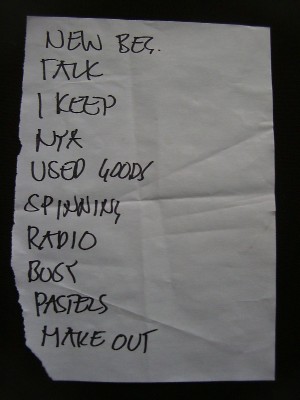 NEW BEG.
TALK
I KEEP
NYX
USED GOODS
SPINNING
RADIO
BUSY
PASTELS
MAKE OUT